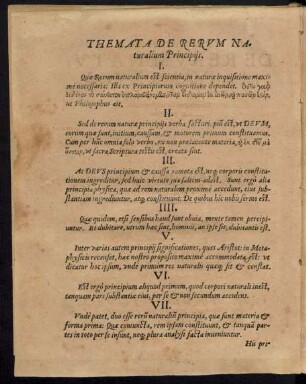 THEMATA DE RERVM NA-
turalium Principijs.
I.
Quæ Rerum naturalium est scientia, in naturæ inquisitione maxi-
me necessaria: Illa ex Principiorum cognitione dependet.
ut Philosophus ait,
II.
Sed de rerum naturæ principijs verba facturi, primùm est, ut DEVM,
eorum quæ sunt, initium, caussam, & motorem primum constituamus.
Cum per hunc omnia solo verbo, ex non præexistente materia,
ut sacra Scriptura testis est, creata sint.
III.
At DEVS principium & caussa remota est, neque corporis constitutio-
nem ingreditur, sed huic virtute sua saltem adest. Sunt ergò alia
principia physica, quæ ad rem naturalem proximè accedunt, eius sub-
stantiam ingrediuntur, atque constituunt. De quibus hic nobis sermo est.
IIII.
Quæ quidem, etsi sensibus haud sunt obuia, mente tamen percipi-
untur. Et dubitare, utrum hæc sint, hominis, an ipse sit, dubitantis est.
V.
Inter varias autem principij significationes, quas Aristot: in Meta-
physicis recenset, hæc nostro proposito maximè accommodata est: ut
dicatur hoc ipsum, unde primum res naturalis quæque fit & constat.
VI.
Est ergò principium aliquid primum, quod corpori naturali inest,
tanquam pars substantiæ eius, per se & non secundum accidens.
VII.
Vnde patet, duo esse rerum naturalium principia, quæ sunt materia &
forma prima: Quæ coniuncta, rem ipsam constituunt, & tanquam par-
tes in toto per se insunt, neque plura analysi facta inueniuntur.
Hij pri-